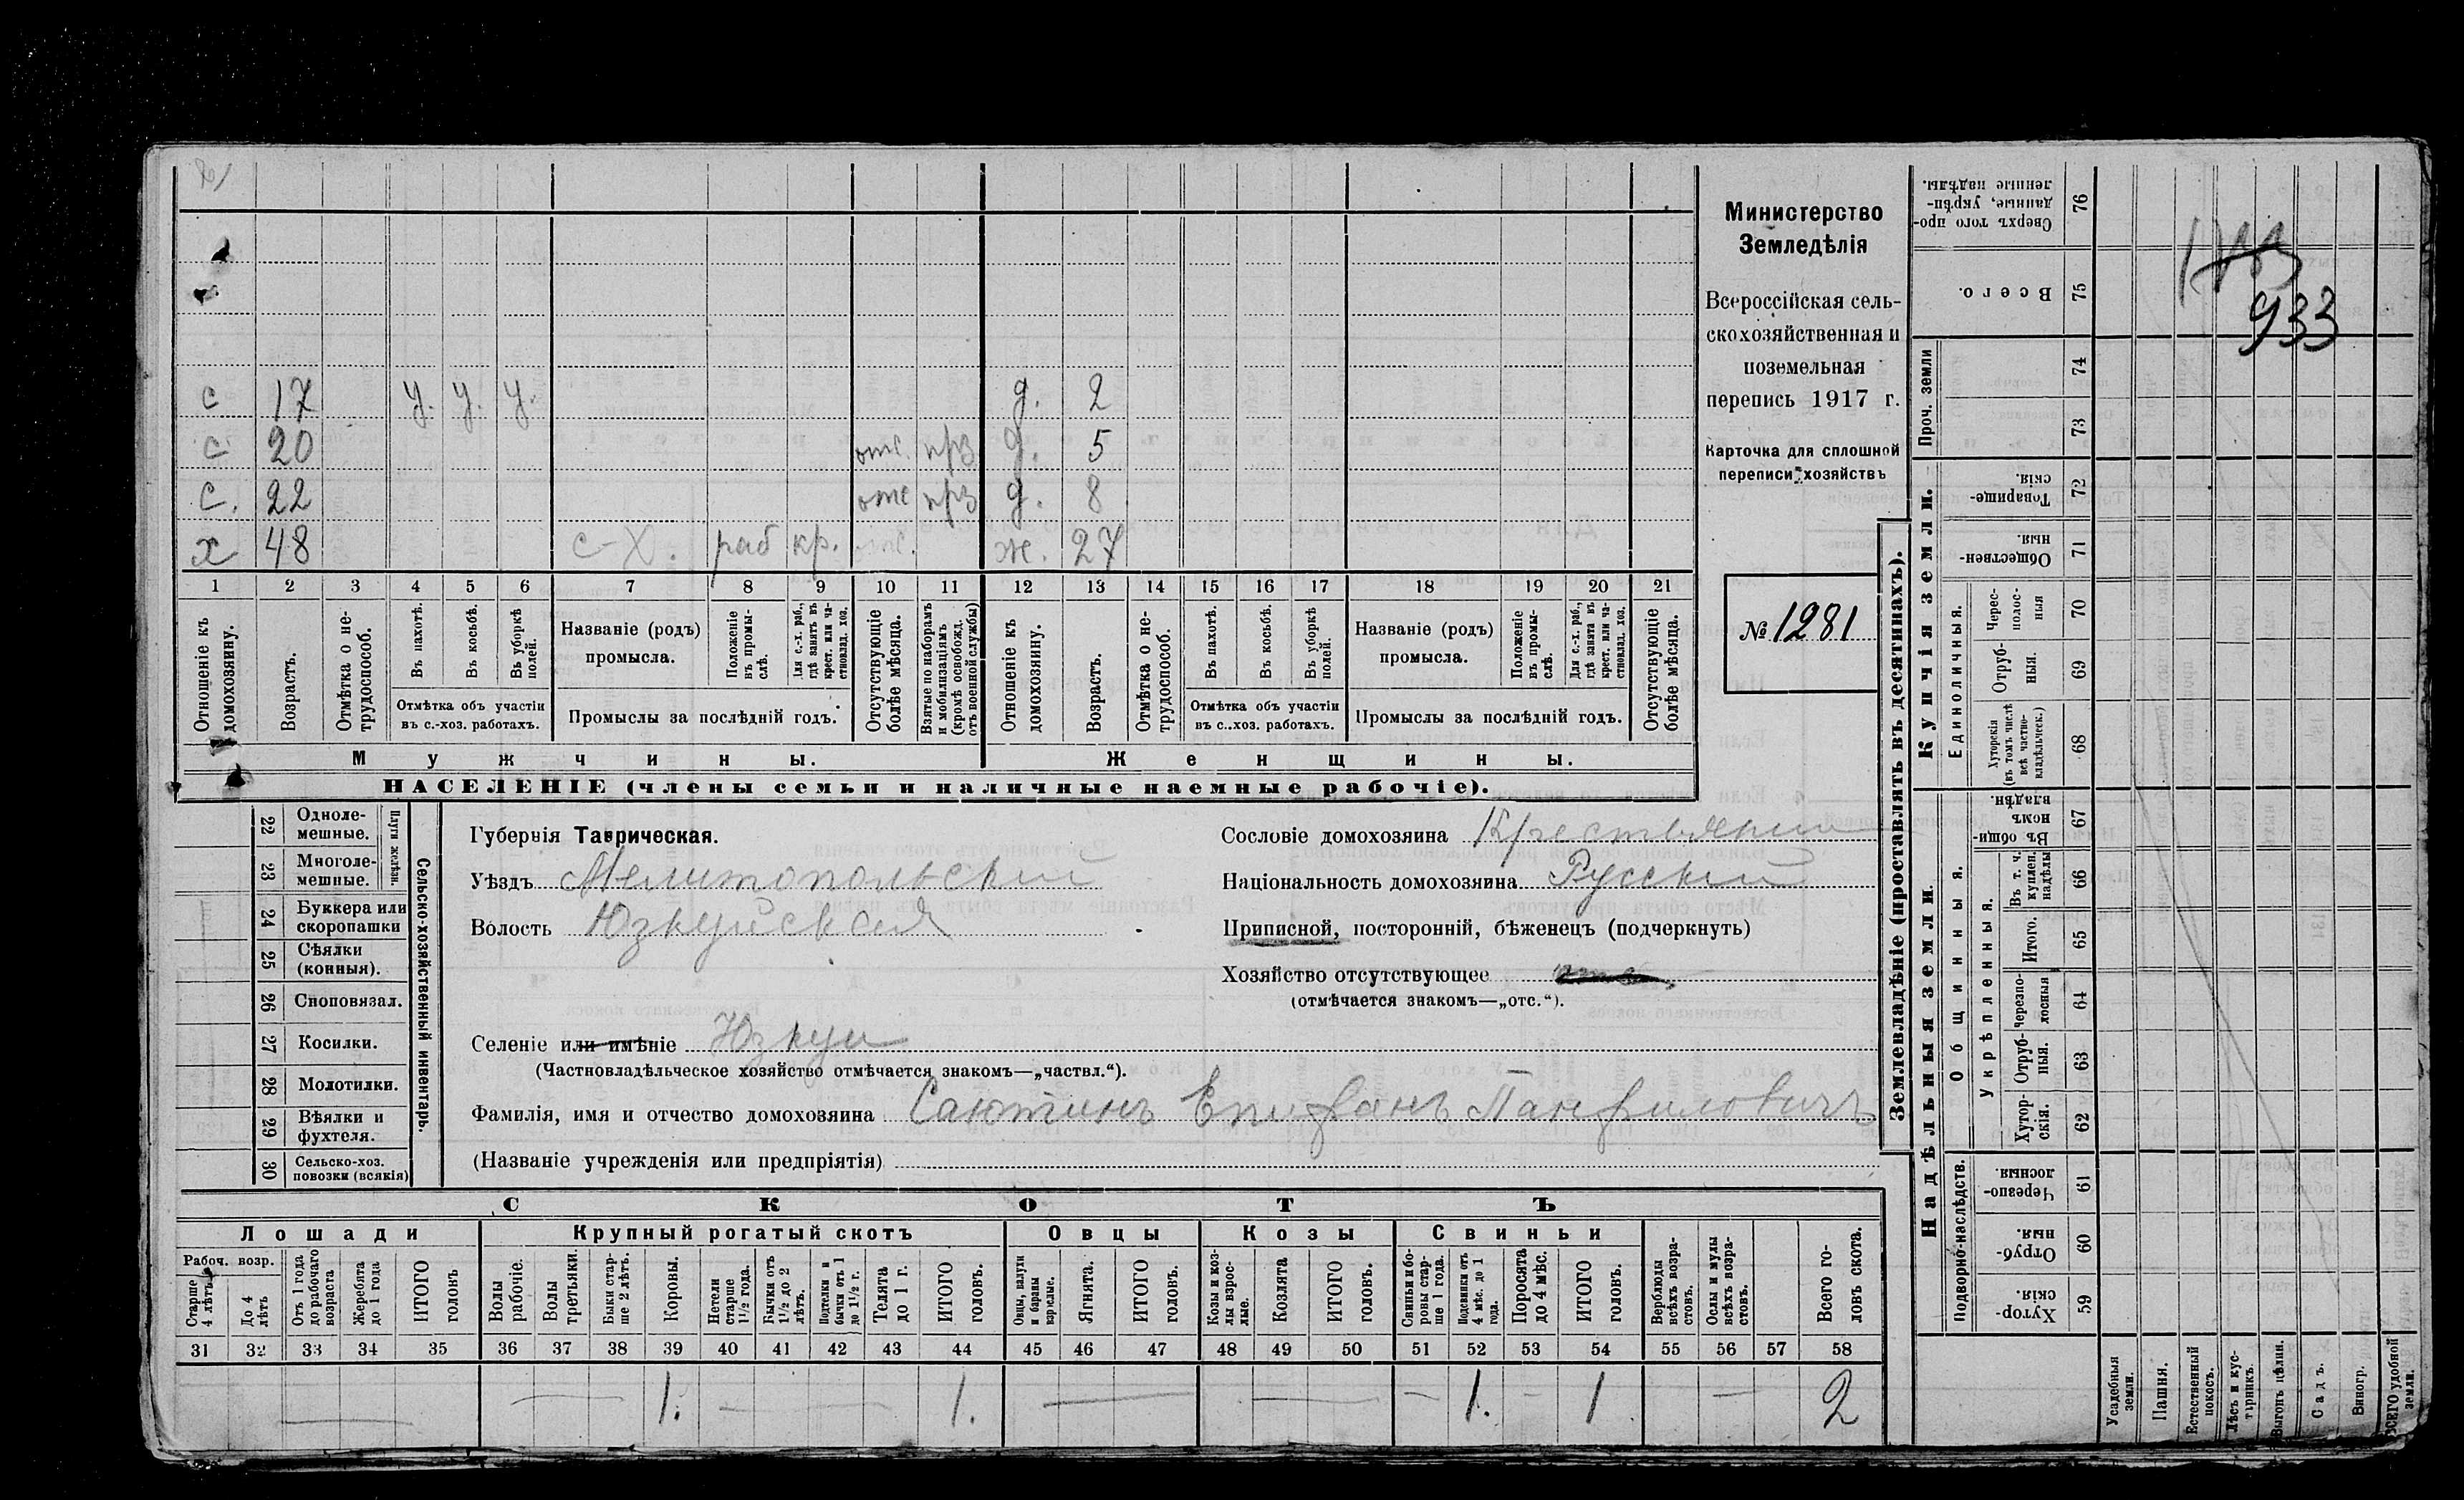 с 17 у. у. у. д. 2
с 20 отс. прз д. 5
с. 22 отс прз д. 8
х 48 с-х. раб кр. ж. 27
1 2 3 4 5 6 7 8 9 10 11 12 13 14 15 16 17 18 19 20 21
Отношеніе къ домохозяину.
Возрастъ.
Отмѣтка о нетрудоспособ.
Въ пахотѣ.
Въ косьбѣ.
Въ уборкѣ полей.
Отмѣтка объ участіи
въ с.-хоз. работахъ.
Названіе (родъ)
промысла.
Положеніе въ промыслѣ.
Для с.-х. раб., гдѣ занятъ въ крест. или частновлад. хоз.
Промыслы за послѣдній годъ.
Отсутствующіе болѣе мѣсяца.
Взятые по наборамъ и мобилизаціямъ (кромѣ освобожд. отъ военной службы)
Отношеніе къ домохозяину.
Возрастъ.
Отмѣтка о нетрудоспособ.
Въ пахотѣ.
Въ косьбѣ.
Въ уборкѣ полей.
Отмѣтка объ участіи
въ с.-хоз. работахъ.
Названіе (родъ)
промысла.
Положеніе въ промыслѣ.
Для с.-х. раб., гдѣ занята въ крест. или частновлад. хоз.
Промыслы за послѣдній годъ.
Отсутствующіе болѣе мѣсяца.
Мужчины. Женщины.
НАСЕЛЕНІЕ (члены семьи и наличные наемные рабочіе).
Министерство
Земледѣлія
Всероссійская сель-
скохозяйственная и
поземельная
перепись 1917 г.
Карточка для сплошной
переписи хозяйствъ
№ 1281
22 Одноле-
мешные.
23 Многоле-
мешные.
Плуги желѣзн.
24 Буккера или
скоропашки
25 Сѣялки
(конныя).
26 Сноповязал.
27 Косилки.
28 Молотилки.
29 Вѣялки и
фухтеля.
30 Сельско-хоз.
повозки (всякія)
Сельско-хозяйственный инвентарь.
Губернія Таврическая.
Уѣздъ Мелитопольскій
Волость Юзкуйская
Селеніе или имѣніе Юзкуи
(Частновладѣльческое хозяйство отмѣчается знакомъ—„частвл.“).
Фамилія, имя и отчество домохозяина Саютинъ Епифанъ Панфиловичъ
(Названіе учрежденія или предпріятія)
Сословіе домохозяина Крестьянин
Національность домохозяина Русский
Приписной, посторонній, бѣженецъ (подчеркнуть)
Хозяйство отсутствующее
(отмѣчается знакомъ—„отс.“).
СКОТЪ
Лошади Крупный рогатый скотъ Овцы Козы Свиньи
Рабоч. возр.
Старше 4 лѣтъ
До 4 лѣтъ
Отъ 1 года до рабочаго возраста
Жеребята до 1 года
ИТОГО головъ
Волы рабочіе.
Волы третьяки.
Быки старше 2 лѣтъ.
Коровы.
Нетели старше 1½ года.
Бычки отъ 1½ до 2 лѣтъ.
Подтелки и бычки отъ 1 до 1½ г.
Телята до 1 г.
ИТОГО головъ.
Овцы, валухи и бараны взрослые.
Ягнята.
ИТОГО головъ.
Козы и козлы взрослые.
Козлята
ИТОГО головъ.
Свиньи и боровы старше 1 года.
Подсвинки отъ 4 мѣс. до 1 года.
Поросята до 4 мѣс.
ИТОГО головъ.
Верблюды всѣхъ возрастовъ.
Ослы и мулы всѣхъ возрастовъ.
Всего головъ скота.
31 32 33 34 35 36 37 38 39 40 41 42 43 44 45 46 47 48 49 50 51 52 53 54 55 56 57 58
— — 1. — — 1. — — — 1. — 1 — 2
Землевладѣніе (проставлять въ десятинахъ).
Купчія земли.
Надѣльныя земли.
76 Сверхъ того проданные, укрѣпленные надѣлы.
75 Всего.
Проч. земли
74
73
72 Товарищескія.
71 Общественныя.
Единоличныя.
70 Чересполосныя
69 Отрубныя.
68 Хуторскія (въ томъ числѣ всѣ частновладѣльческ.)
Общинныя.
67 Въ общинномъ владѣн.
Укрѣпленныя.
66 Въ т. ч. куплен. надѣлы
65 Итого.
64 Черезполосныя
63 Отрубныя.
62 Хуторскія.
Подворно-наслѣдств.
61 Черезполосныя
60 Отрубныя.
59 Хуторскія.
Усадебныя земли.
Пашня.
Естественный покосъ.
Лѣсъ и кустарникъ.
Выгонъ цѣлин.
Садъ.
Виногр.
ВСЕГО удобной земли.
933